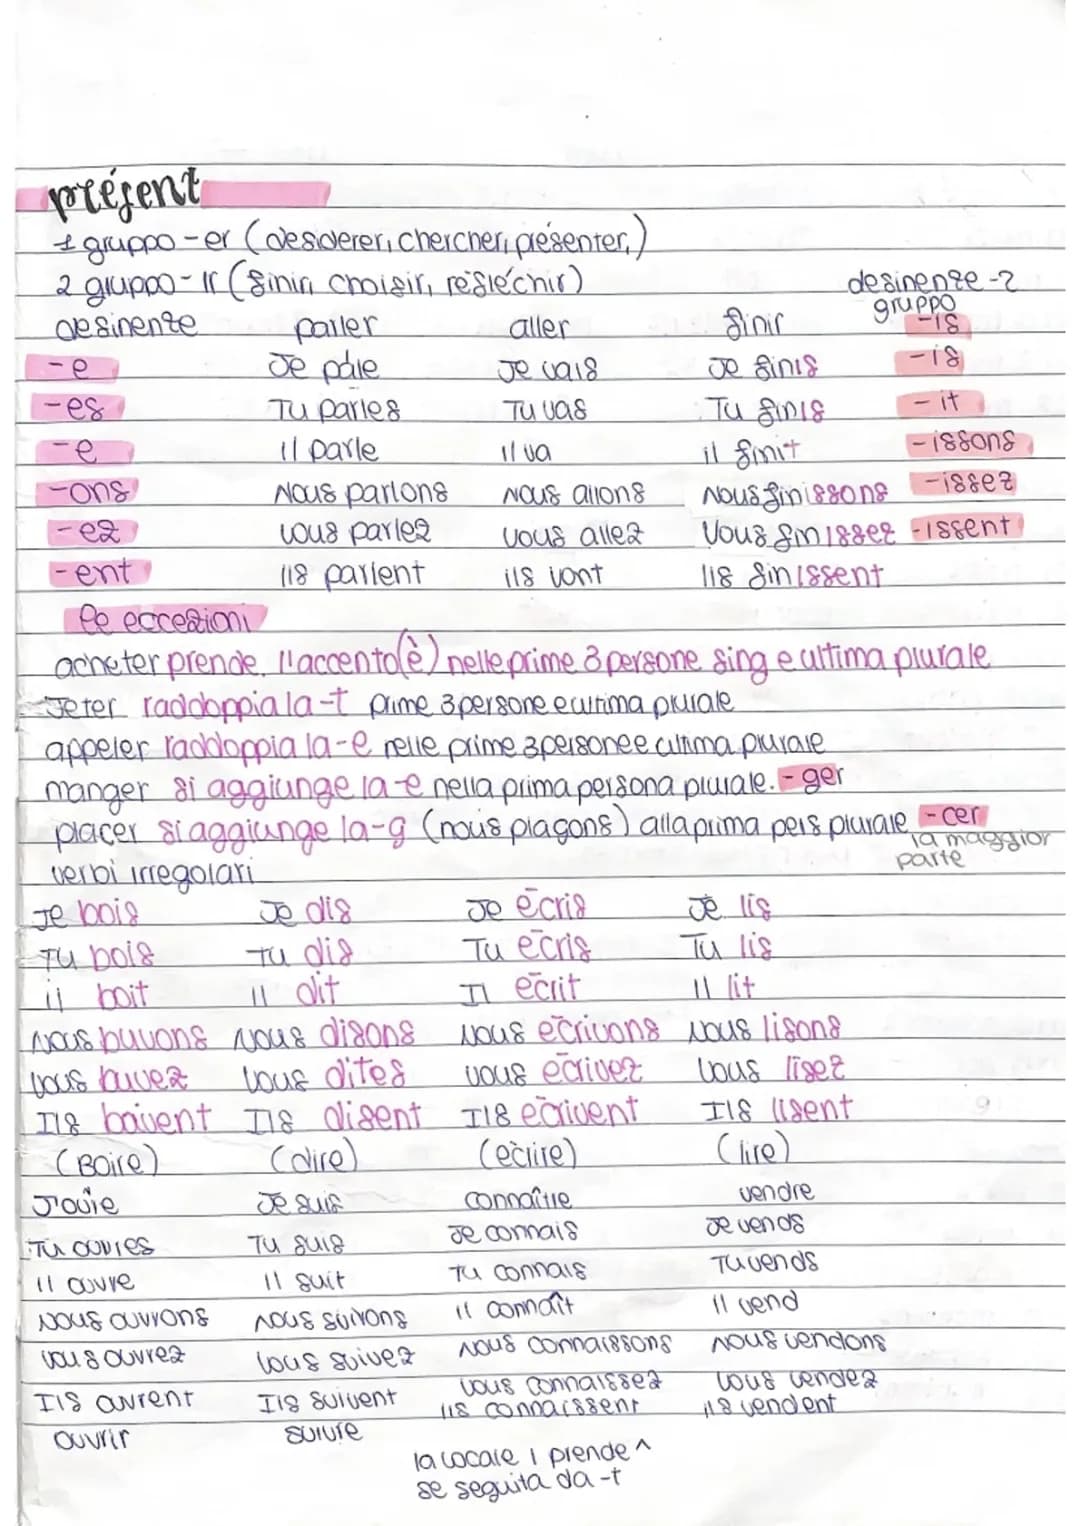 présent
1 gruppo -er (desiderer, chercher, présenter,)
2 gruppo - ir (finir, choisir, refléchir)
desinenze -2
gruppo
desinenze parler aller finir -is
-e Je pale Je vais Je finis -is
-es Tu parles Tu vas Tu finis - it
-e il parle il va il finit -issons
-ons Nous parlons Nous allons Nous finissons -issez
-ez vous parlez vous allez Vous finissez -issent
-ent ils parlent ils vont ils finissent
le eccezioni
acheter prende l'accento (è) nelle prime 3 persone sing e ultima plurale
Jeter raddoppia la -t prime 3 persone e ultima plurale
appeler raddoppia la -e nelle prime 3 persone e ultima plurale
manger si aggiunge la -e nella prima persona plurale. - ger
placer si aggiunge la -g (nous plagons) alla prima pers plurale - cer
la maggior
parte
verbi irregolari
Je bois Je dis Je écris Je lis
Tu bois Tu dis Tu écris Tu lis
il boit Il dit Il écrit Il lit
Nous buvons Nous disons Nous écrivons Nous lisons
vous buvez vous dites vous écrivez vous lisez
Ils boivent Ils disent Ils écrivent Ils lisent
(Boire) (dire) (ecrire) (lire)
J'ouvre Je suis connaître vendre
Tu ouvres Tu suis Je connais Je vends
Il ouvre Il suit Tu connais Tu vends
Nous ouvrons nous suivons il connaît Il vend
vous ouvrez vous suivez nous connaissons nous vendons
Ils ouvrent Ils suivent vous connaissez vous vendez
ouvrir suivre ils connaissent ils vendent
la vocale i prende ^
se seguita da -t